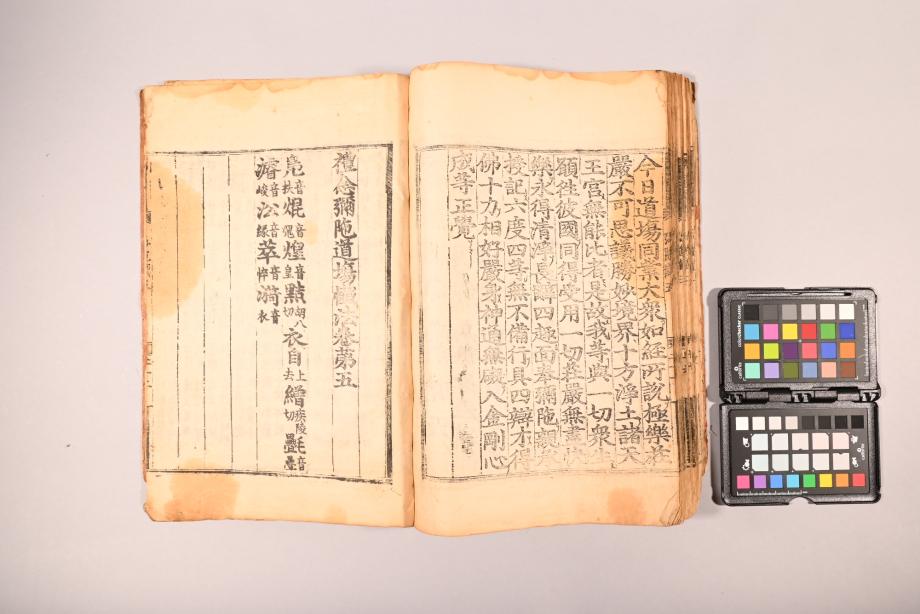 今日道場同業大衆如經所說極樂莊
嚴不可思議勝妙境界十方淨土諸天
王宮無能比者是故我等與一切衆生
願徃彼國同得受用一切莊嚴無盡快
樂永得清淨息辭四趣面奉彌陁親矣
授記六度四等無不備行具四辯才得
佛十力相好嚴身神通無礙入金剛心
成等正覺
禮念彌陁道場懺法卷第五
鳧音扶焜音焜煌音皇點胡八切衣自上去繒疾陵切㲲音疊
濬音峻沿音緣萃音悴漪音衣